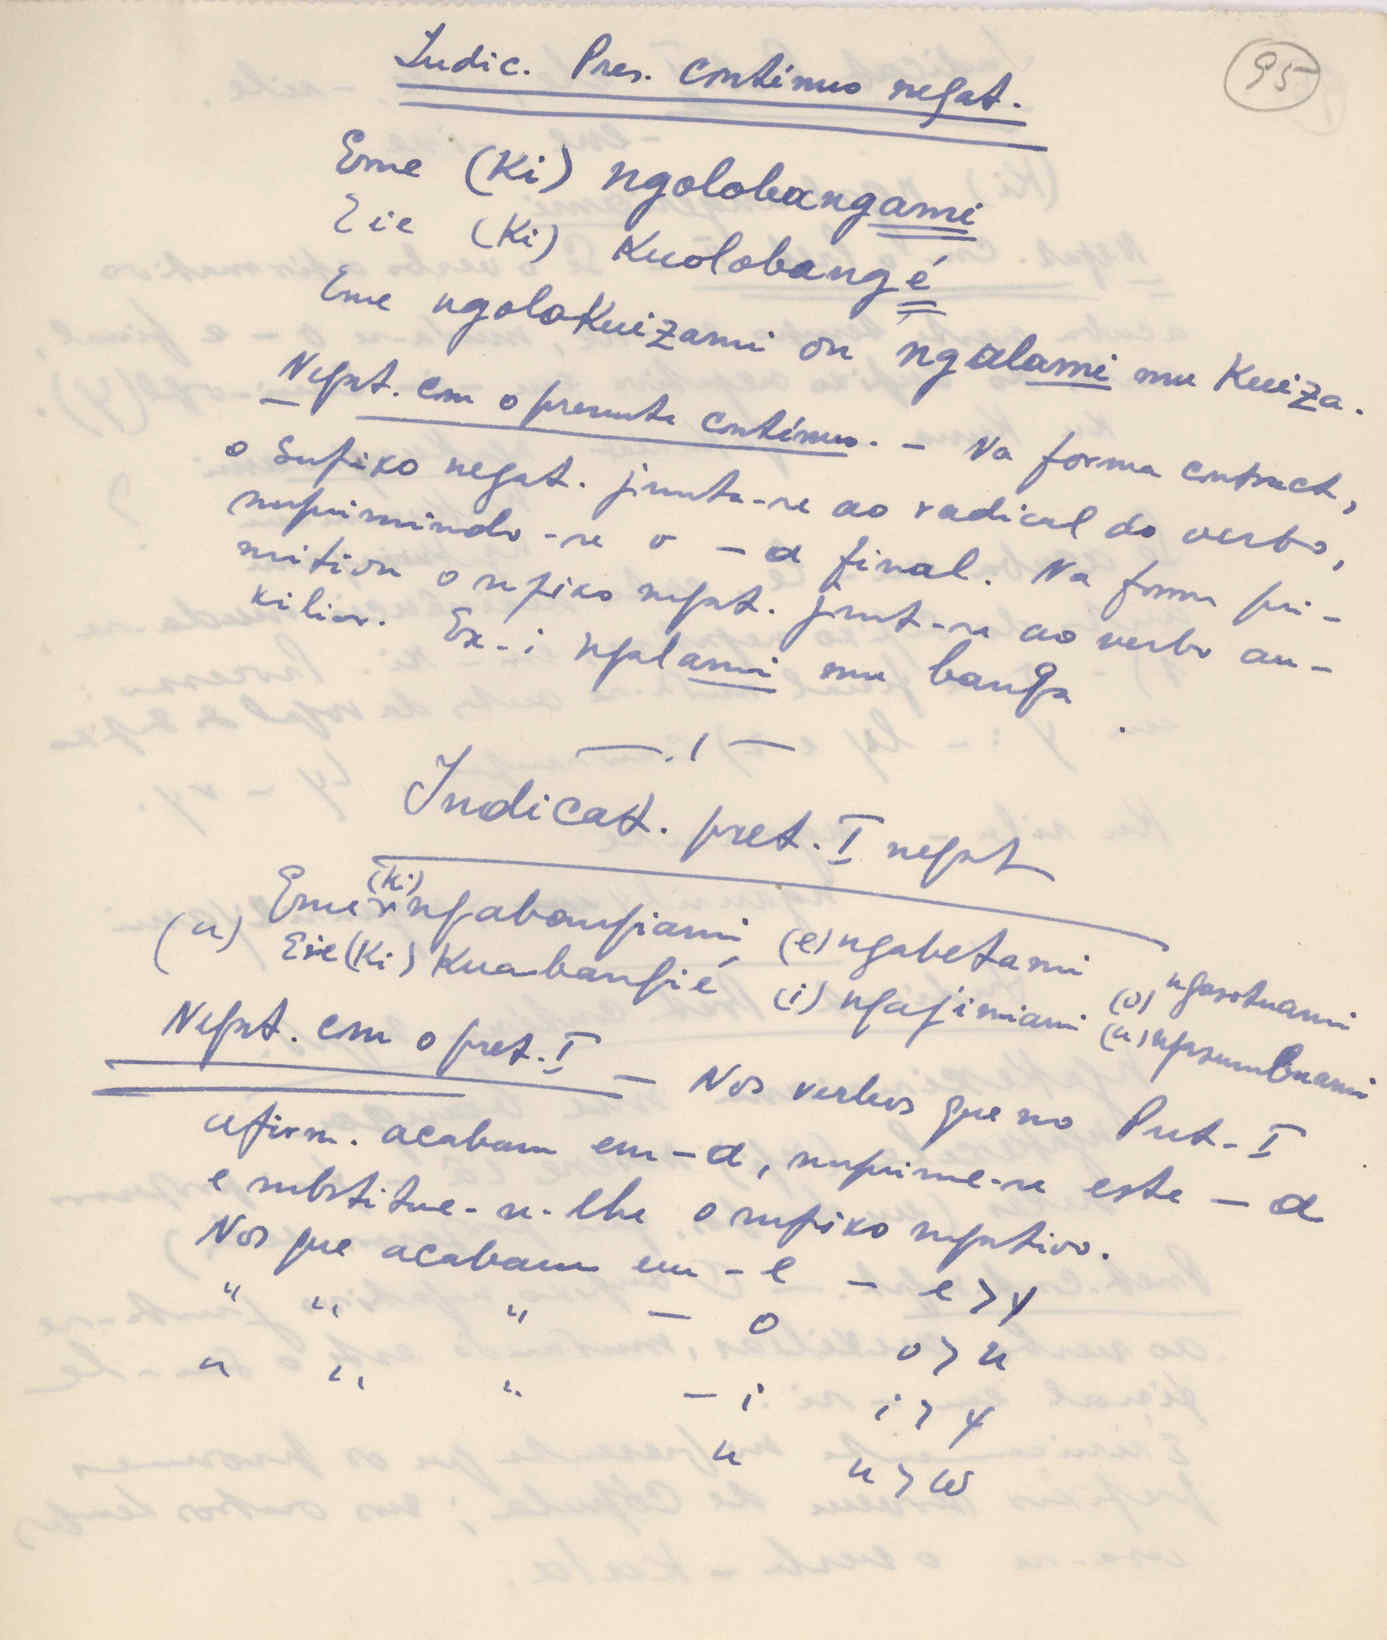 95
Indic. Pres. contínuo negat.
Eme (Ki) ngolobangami
Eie (Ki) Kuolobangé
Eme ngoloKuizami ou ngalami mu Kuiza.
Negat. com o presente contínuo. - Na forma contract,
o sufixo negat. junta-se ao radical do verbo,
suprimindo-se o - a final. Na forma pri-
mitiva o sufixo negat. junt-se ao verbo au-
xiliar. Ex-: ngalami mu banga.
Indicat. pret. I negat
Eme (Ki) ngabangiami (e) ngabetami (o) ngasotuami
(a) Eie (Ki) Kuabangié (i) ngajimiami (u) ngasumbuami
Negat. com o pret. I - Nos verbos que no Pret-I
afirm. acabam em -a, suprime-se este - a
e substitue-se-lhe o sufixo negativo.
Nos que acabam em - e - e > y
" " " - o o > u
" " " - i i > y
u u > w